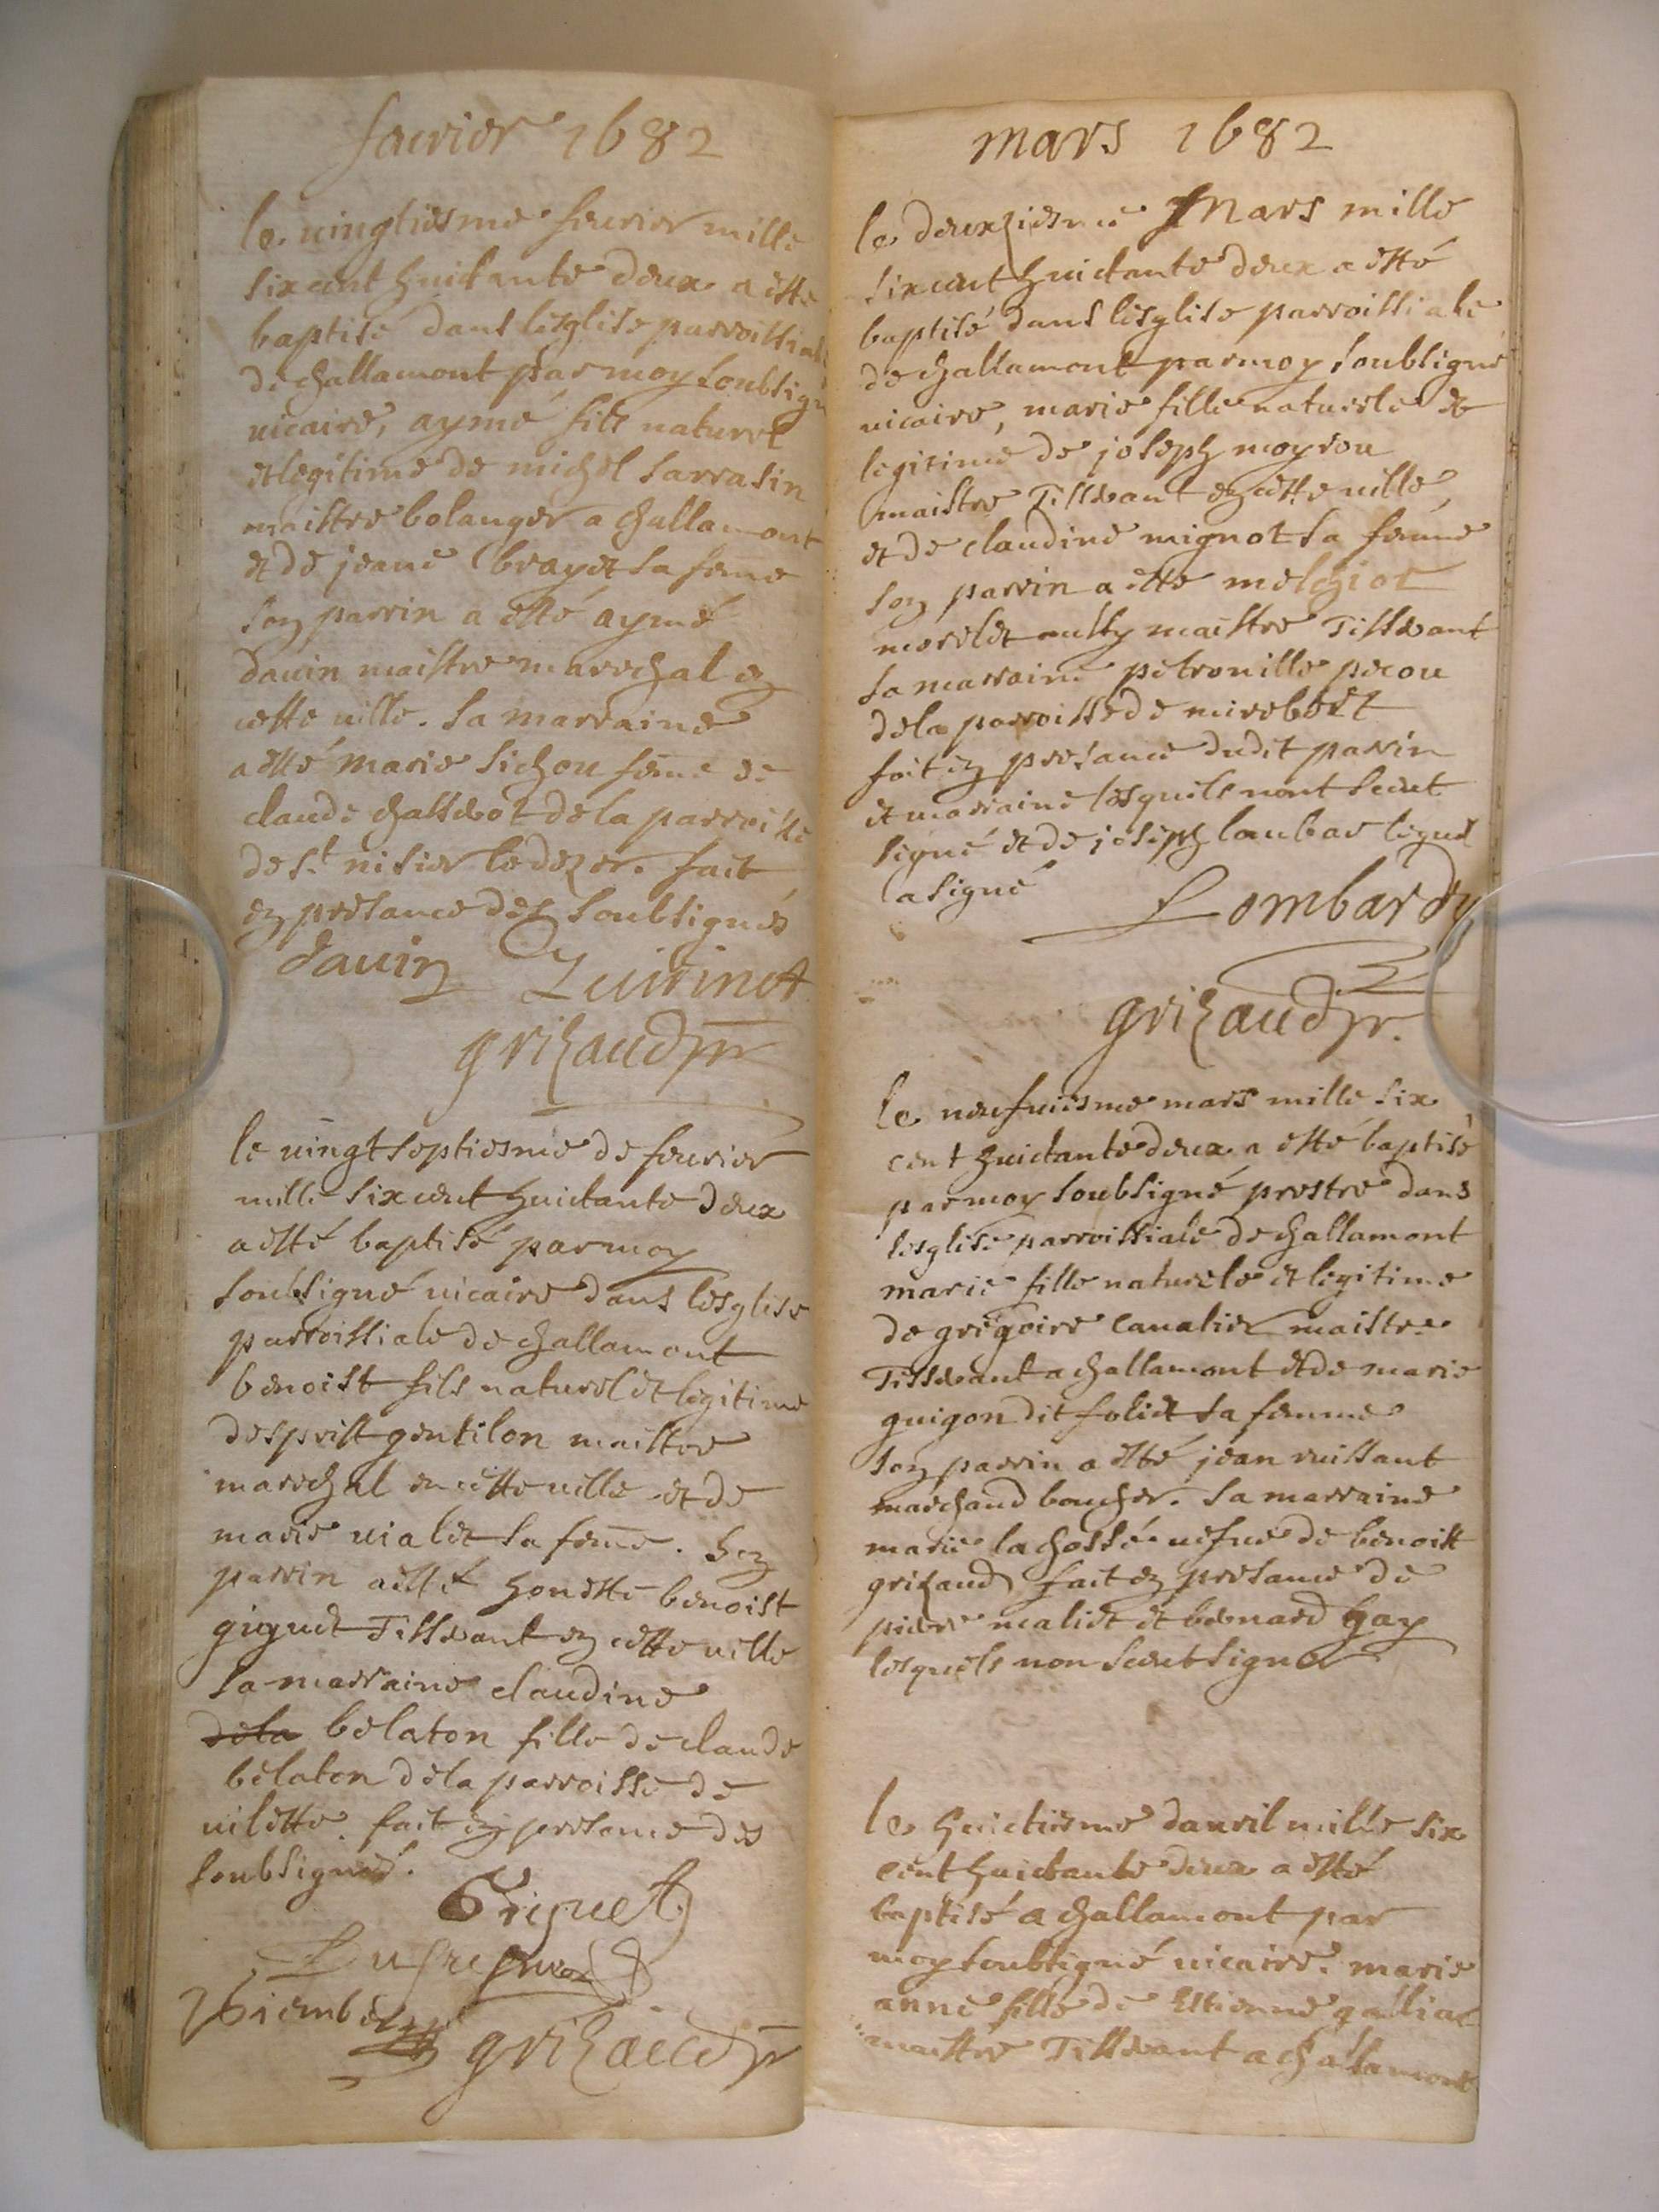 feuvier 1682
le vingtiesme feuvier mille
six cent huictante deux a esté
baptisé dans lesglise parroissiale
de challamont par moy soubsigné
vicaire, aymé fils naturel
et legitime de michel sarrasin
maistre bolanger a challamont
et de jeane brayet sa feme
son parrin a esté aymé
dauin maistre marechal en
cette ville. sa marraine
a esté marie sichou feme de
claude de la parroisse
de st nisier le dezer. fait
en presance des soubsignés
dauin
grizaud
le vingt septiesme de feuvier
mille six cent huictante deux
a esté baptisé par moy
soubsigné vicaire dans lesglise
parroissiale de challamont
benoist fils naturel et legitime
desprist gentilon maistre
marechal en cette ville et de
marie vialet sa feme. son
parrin a esté honeste benoist
giguet Tisserant en cette ville
sa marraine claudine
dela belaton fille de claude
belaton de la parroisse de
vilette. fait en presance des
soubsignés.
Giguet
grizaud
mars 1682
le deuxziesme Mars mille
six cent huictante deux a esté
baptisé dans lesglise parroissiale
de challamont par moy soubsigné
vicaire, marie fille naturele et
legitime de joseph moyrou
maistre Tisserant en cette ville,
et de claudine mignot sa femme
son parrin a esté melchior
morelet aussy maistre Tisserant
sa marraine petronille pecou
de la parroisse de mirebert
fait en presance dudit parrin
et marraine lesquels nont sceut
signé et de joseph lombar lequel
a signé
Lombard
grizaud
le neufuiesme mars mille six
cent huictante deux a esté baptisé
par moy soubsigné prestre dans
lesglise parroissiale de challamont
marie fille naturele et legitime
de gregoire Caualier maistre
Tisserant a challamont et de marie
guigon dit foliet sa femme
son parrin a esté jean vuissant
marchand boucher. sa marraine
marie lachossé vefue de benoist
grizaud fait en presance de
piere maliet et bernard Gay
lesquels non sceut signer
le huictiesme dauril mille six
cent huictante deux a esté
baptisé a challamont par
moy soubsigné vicaire. marie
anne fille de Estienne
maistre Tisserant a challamont